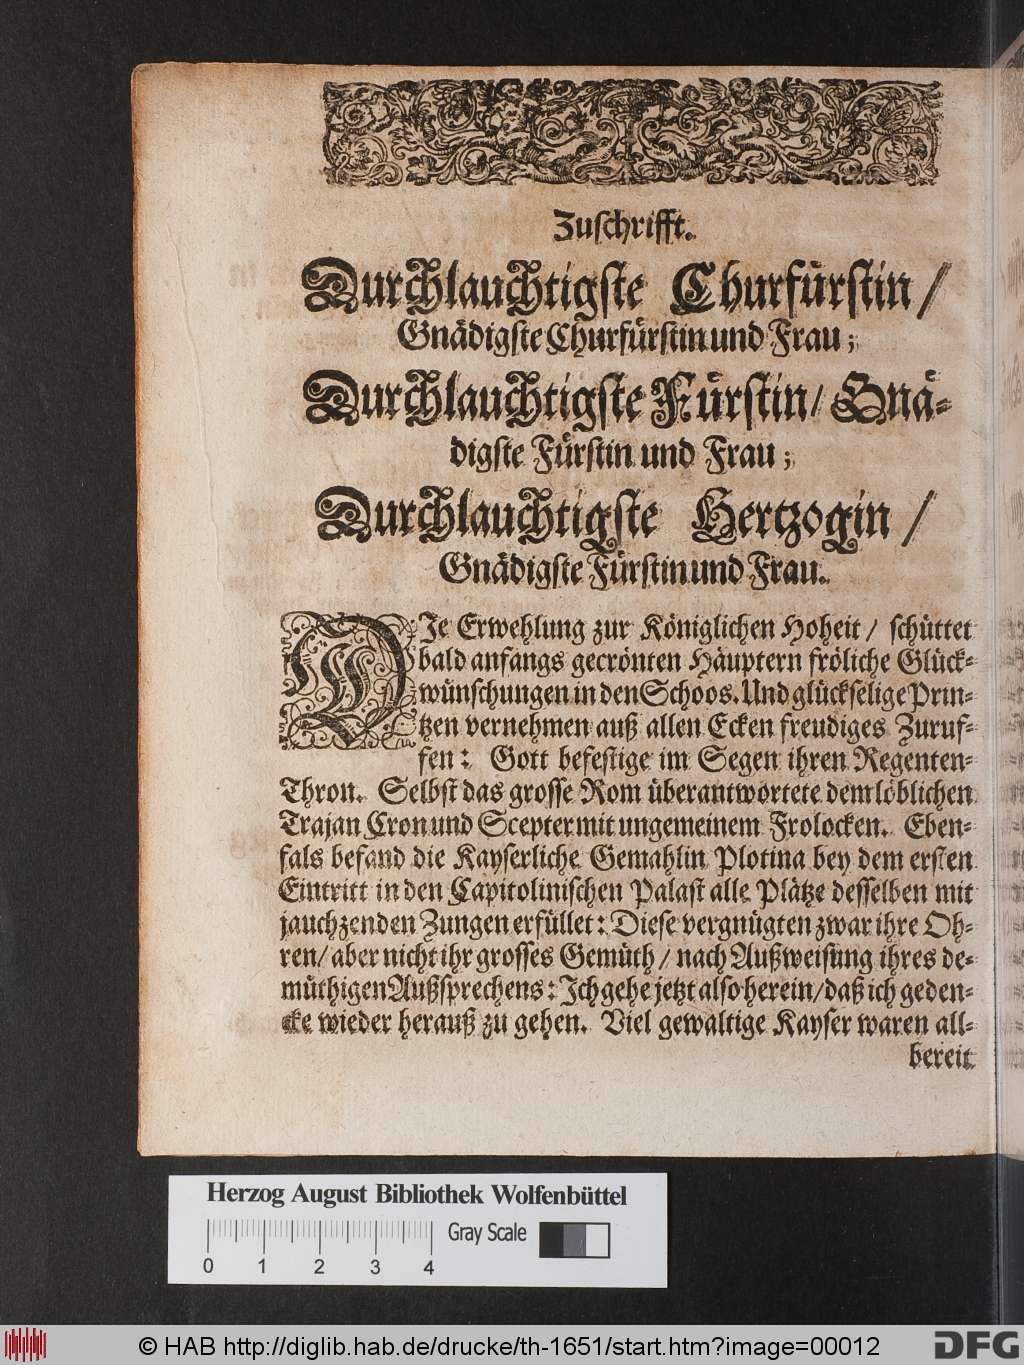 Zuschrifft.
Durchlauchtigste Churfürstin /
Gnädigste Churfürstin und Frau ;
Durchlauchtigste Fürstin / Gnä-
digste Fürstin und Frau ;
Durchlauchtigste Hertzogin /
Gnädigste Fürstin und Frau.
DIe Erwehlung zur Königlichen Hoheit / schüttet
bald anfangs gecrönten Häuptern fröliche Glück-
wünschungen in den Schoos. Und glückselige Prin-
tzen vernehmen auß allen Ecken freudiges Zuruf-
fen : Gott befestige im Segen ihren Regenten-
Thron. Selbst das grosse Rom überantwortete dem löblichen
Trajan Cron und Scepter mit ungemeinem Frolocken. Eben-
fals befand die Kayserliche Gemahlin Plotina bey dem ersten
Eintritt in den Capitolinischen Palast alle Plätze desselben mit
jauchzenden Zungen erfüllet : Diese vergnügten zwar ihre Oh-
ren / aber nicht ihr grosses Gemüth / nach Außweisung ihres de-
müthigen Außsprechens : Ich gehe jetzt also herein / daß ich geden-
cke wieder herauß zu gehen. Viel gewaltige Kayser waren all-
bereit
Herzog August Bibliothek Wolfenbüttel
Gray Scale
0 1 2 3 4
© HAB http://diglib.hab.de/drucke/th-1651/start.htm?image=00012
DFG